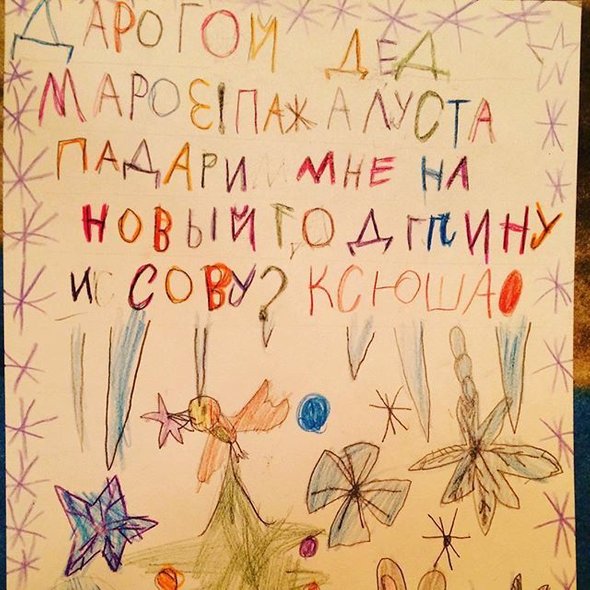 ДАРОГОЙ ДЕД
МАРОЗ! ПАЖАЛУСТА
ПАДАРИ МНЕ НА
НОВЫЙ ГОД ГЛИНУ
И СОВУ? КСЮША